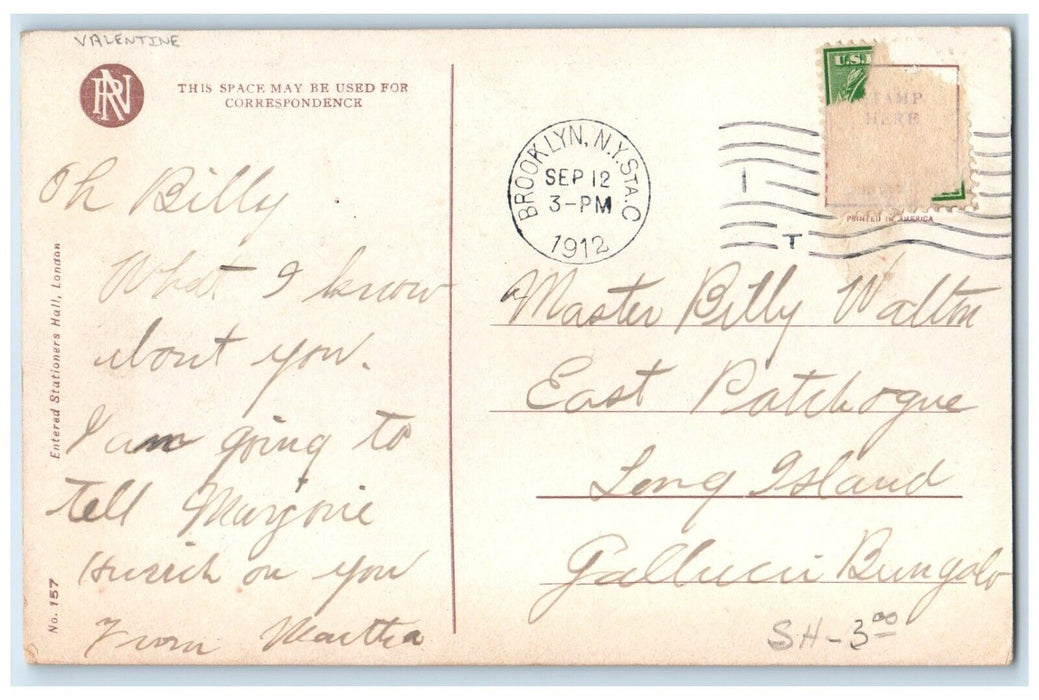 VALENTINE
RN
THIS SPACE MAY BE USED FOR
CORRESPONDENCE
Oh Billy
What I know
about you.
I am going to
tell Marjorie
on you
From Martha
Entered Stationers Hall, London
No. 157
BROOKLYN, N.Y. STA. C
SEP 12
3-PM
1912
U.S.
STAMP
HERE
PRINTED IN AMERICA
I
T
Master Billy Walton
East Patchogue
Long Island
Gallucci Bungalo
SH-3.00